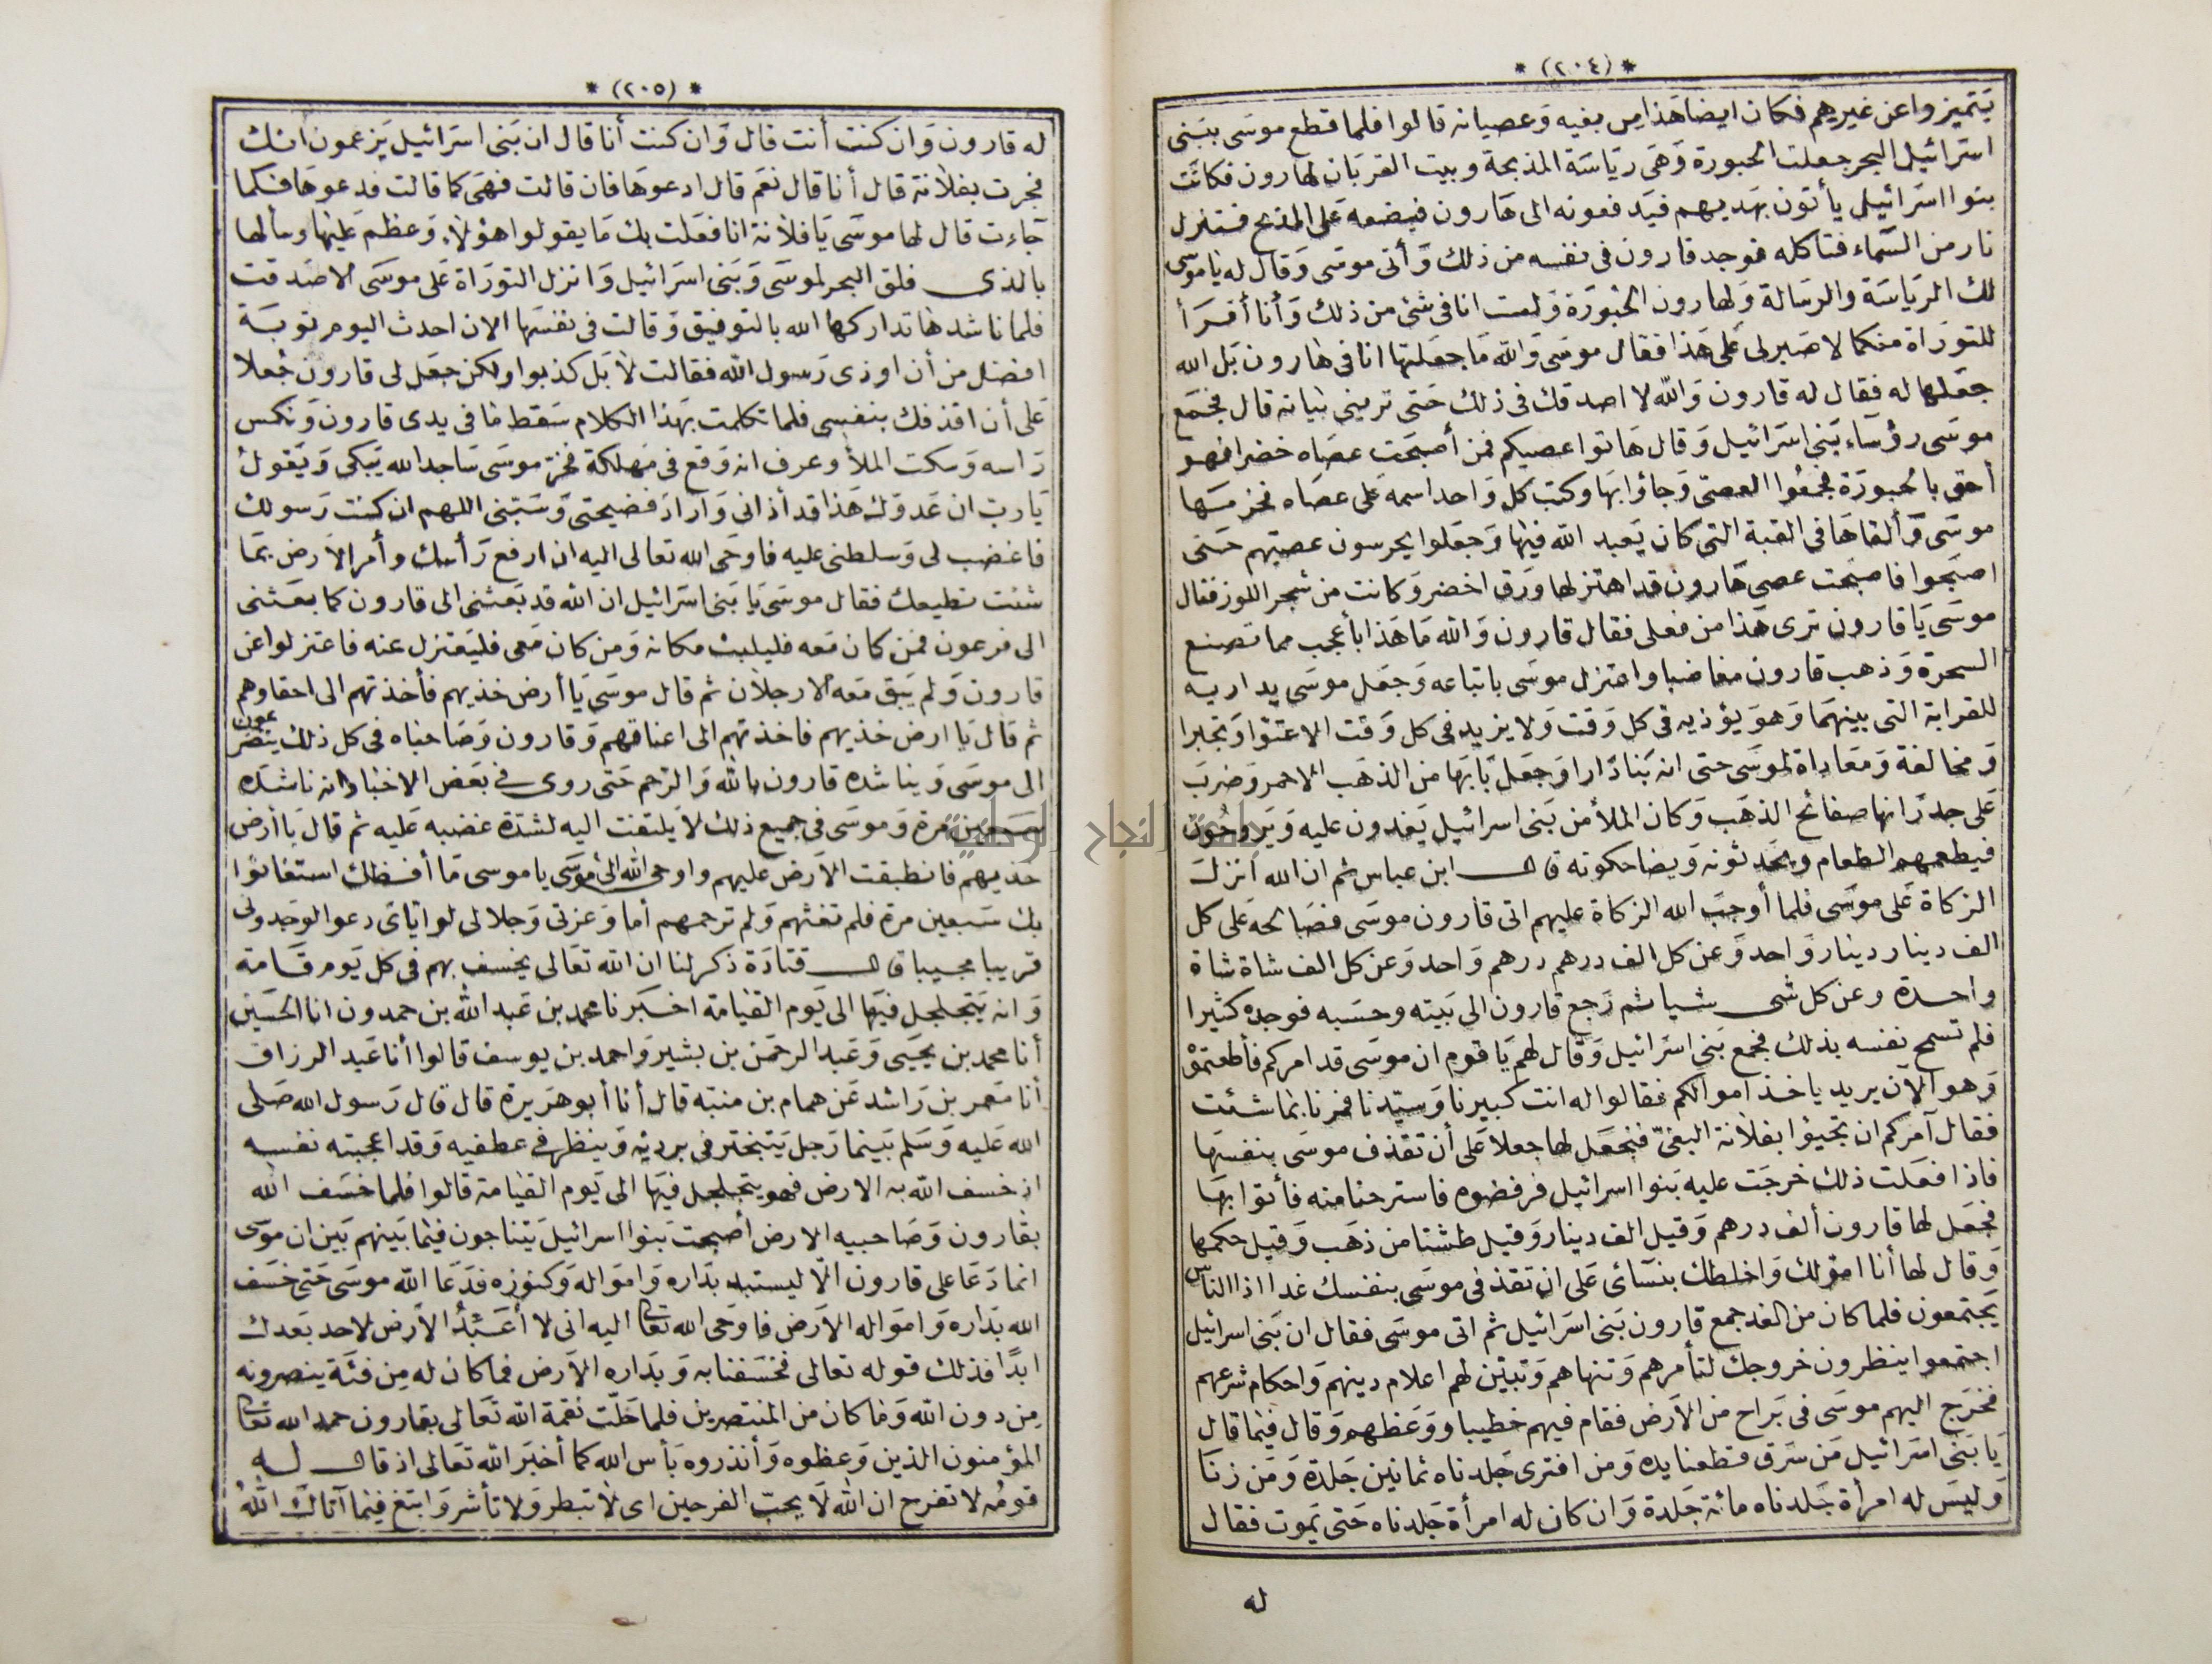 * (٢٠٤) *
يتميزوا عن غيرهم فكان ايضا هذا من بغيه وعصيانه قالوا فلما قطع موسى ببنى
اسرائيل البحر جعلت الحبورة وهى رياسة المذبحة وبيت القربان لهارون فكانت
بنوا اسرائيل يأتون بهديهم فيدفعونه الى هارون فيضعه على المذبح فتنزل
نار من السماء فتأكله فوجد قارون فى نفسه من ذلك وأتى موسى وقال له يا موسى
لك الرياسة والرسالة ولهارون الحبورة ولست انا فى شئ من ذلك وأنا أقرأ
للتوراة منكما لا صبر لى على هذا فقال موسى والله ما جعلتها انا فى هارون بل الله
جعلها له فقال له قارون والله لا اصدقك فى ذلك حتى ترينى بيانه قال فجمع
موسى رؤساء بنى اسرائيل وقال هاتوا عصيكم فمن أصبحت عصاه خضرا فهو
أحق بالحبورة فجمعوا العصى وجاؤا بها وكتب كل واحد اسمه على عصاه فحزمها
موسى وألقاها فى القبة التى كان يعبد الله فيها وجعلوا يحرسون عصيهم حتى
اصبحوا فاصبحت عصى هارون قد اهتز لها ورق اخضر وكانت من شجر اللوز فقال
موسى يا قارون ترى هذا من فعلى فقال قارون والله ما هذا بأعجب مما تصنع
السحرة وذهب قارون مغاضبا واعتزل موسى باتباعه وجعل موسى يداريه
للقرابة التى بينهما وهو يؤذيه فى كل وقت ولا يزيد فى كل وقت الا عتوا وتجبرا
ومخالفة ومعاداة لموسى حتى انه بنا دارا وجعل بابها من الذهب الاحمر وضرب
على جدرانها صفائح الذهب وكان الملأ من بنى اسرائيل يغدون عليه ويروحون
فيطعمهم الطعام ويحدثونه ويضاحكونه قال ابن عباس ثم ان الله أنزل
الزكاة على موسى فلما أوجب الله الزكاة عليهم اتى قارون موسى فصالحه على كل
الف دينار دينار واحد وعن كل الف درهم درهم واحد وعن كل الف شاة شاة
واحدة وعن كل شى شيا ثم رجع قارون الى بيته وحسبه فوجده كثيرا
فلم تسمح نفسه بذلك فجمع بنى اسرائيل وقال لهم يا قوم ان موسى قد امركم فأطعتموْ
وهو الآن يريد ياخذ اموالكم فقالوا له انت كبيرنا وسيدنا فمرنا بما شئت
فقال آمركم ان تجيؤا بفلانة البغىّ فنجعل لها جعلا على أن تقذف موسى بنفسها
فاذا فعلت ذلك خرجت عليه بنوا اسرائيل فرفضوه فاسترحنا منه فأتوا بها
فجعل لها قارون ألف درهم وقيل الف دينار وقيل طشتا من ذهب وقيل حكمها
وقال لها أنا امولك واخلطك بنسائى على ان تقذفى موسى بنفسك غدا اذا الناس
يجتمعون فلما كان من الغد جمع قارون بنى اسرائيل ثم اتى موسى فقال ان بنى اسرائيل
اجتمعوا ينظرون خروجك لتأمرهم وتنهاهم وتبين لهم اعلام دينهم واحكام شرعهم
فخرج اليهم موسى فى براح من الارض فقام فيهم خطيبا ووعظهم وقال فيما قال
يا بنى اسرائيل من سرق قطعنا يده ومن افترى جلدناه ثمانين جلدة ومن زنا
وليس له امرأة جلدناه مائة جلدة وان كان له امرأة جلدناه حتى يموت فقال
له
* (٢٠٥) *
له قارون وان كنت أنت قال وان كنت أنا قال ان بنى اسرائيل يزعمون انك
فجرت بفلانة قال أنا قال نعم قال ادعوها فان قالت فهى كما قالت فدعوها فلما
جاءت قال لها موسى يا فلانة انا فعلت بك ما يقولوا هؤلاء وعظم عليها وسألها
بالذى فلق البحر لموسى وبنى اسرائيل وانزل التوراة على موسى الا صدقت
فلما ناشدها تداركها الله بالتوفيق وقالت فى نفسها الان احدث اليوم توبة
افضل من أن اوذى رسول الله فقالت لا بل كذبوا ولكن جعل لى قارون جُعلا
على أن اقذفك بنفسى فلما تكلمت بهذا الكلام سقط ما فى يدى قارون ونكس
راسه وسكت الملأ وعرف انه وقع فى مهلكة فخرّ موسى ساجدا لله يبكى ويقول
يا رب ان عدوك هذا قد أذانى واراد فضيحتى وسبنى اللهم ان كنت رسولك
فاغضب لى وسلطنى عليه فاوحى الله تعالى اليه ان ارفع رأسك وأمر الارض بما
شئت تطيعك فقال موسى يا بنى اسرائيل ان الله قد بعثنى الى قارون كما بعثنى
الى فرعون فمن كان معه فليلبث مكانه ومن كان معى فليعتزل عنه فاعتزلوا عن
قارون ولم يبق معه الا رجلان ثم قال موسى يا أرض خذيهم فأخذتهم الى احقاوهم
ثم قال يا ارض خذيهم فاخذتهم الى اعناقهم وقارون وصاحباه فى كل ذلك يتضرعون
الى موسى ويناشده قارون بالله والرحم حتى روى فى بعض الاخبار انه ناشده
سبعين مرة وموسى فى جميع ذلك لا يلتفت اليه لشدة غضبه عليه ثم قال يا أرض
خذيهم فانطبقت الارض عليهم واوحى الله الى موسى يا موسى ما أفظك استغاثوا
بك سبعين مرة فلم تغثهم ولم ترحمهم أما وعزتى وجلالى لو اياى دعوا لوجدونى
قريبا مجيبا قال قتادة ذكر لنا ان الله تعالى يخسف بهم فى كل يوم قامة
وانه يتجلجل فيها الى يوم القيامة اخبرنا محمد بن عبد الله بن حمدون انا الحسين
أنا محمد بن يحيى وعبد الرحمن بن بشير واحمد بن يوسف قالوا أنا عبد الرزاق
أنا معمر بن راشد عن همام بن منبه قال أنا أبو هريرة قال قال رسول الله صلى
الله عليه وسلم بينما رجل يتبختر فى برديه وينظر فى عطفيه وقد اعجبته نفسه
اذ خسف الله به الارض فهو يتجلجل فيها الى يوم القيامة قالوا فلما خسف الله
بقارون وصاحبيه الارض أصبحت بنوا اسرائيل يتناجون فيما بينهم بين ان موسى
انما دعا على قارون الا ليستبد بداره وامواله وكنوزه فدعا الله موسى حتى خسف
الله بداره وامواله الارض فاوحى الله تعالى اليه انى لا أعَبِّدُ الارض لاحد بعدك
ابدًا فذلك قوله تعالى فخسفنا به وبداره الارض فما كان له من فئة ينصرونه
من دون الله وما كان من المنتصرين فلما حلّت نقمة الله تعالى بقارون حمد الله تعالى
المؤمنون الذين وعظوه وأنذروه بأس الله كما أخبر الله تعالى اذ قال له
قومُه لا تفرح ان الله لا يحب الفرحين اى لا تبطر ولا تأشر وابتغ فيما آتاك اللهُ
جامعة النجاح الوطنية